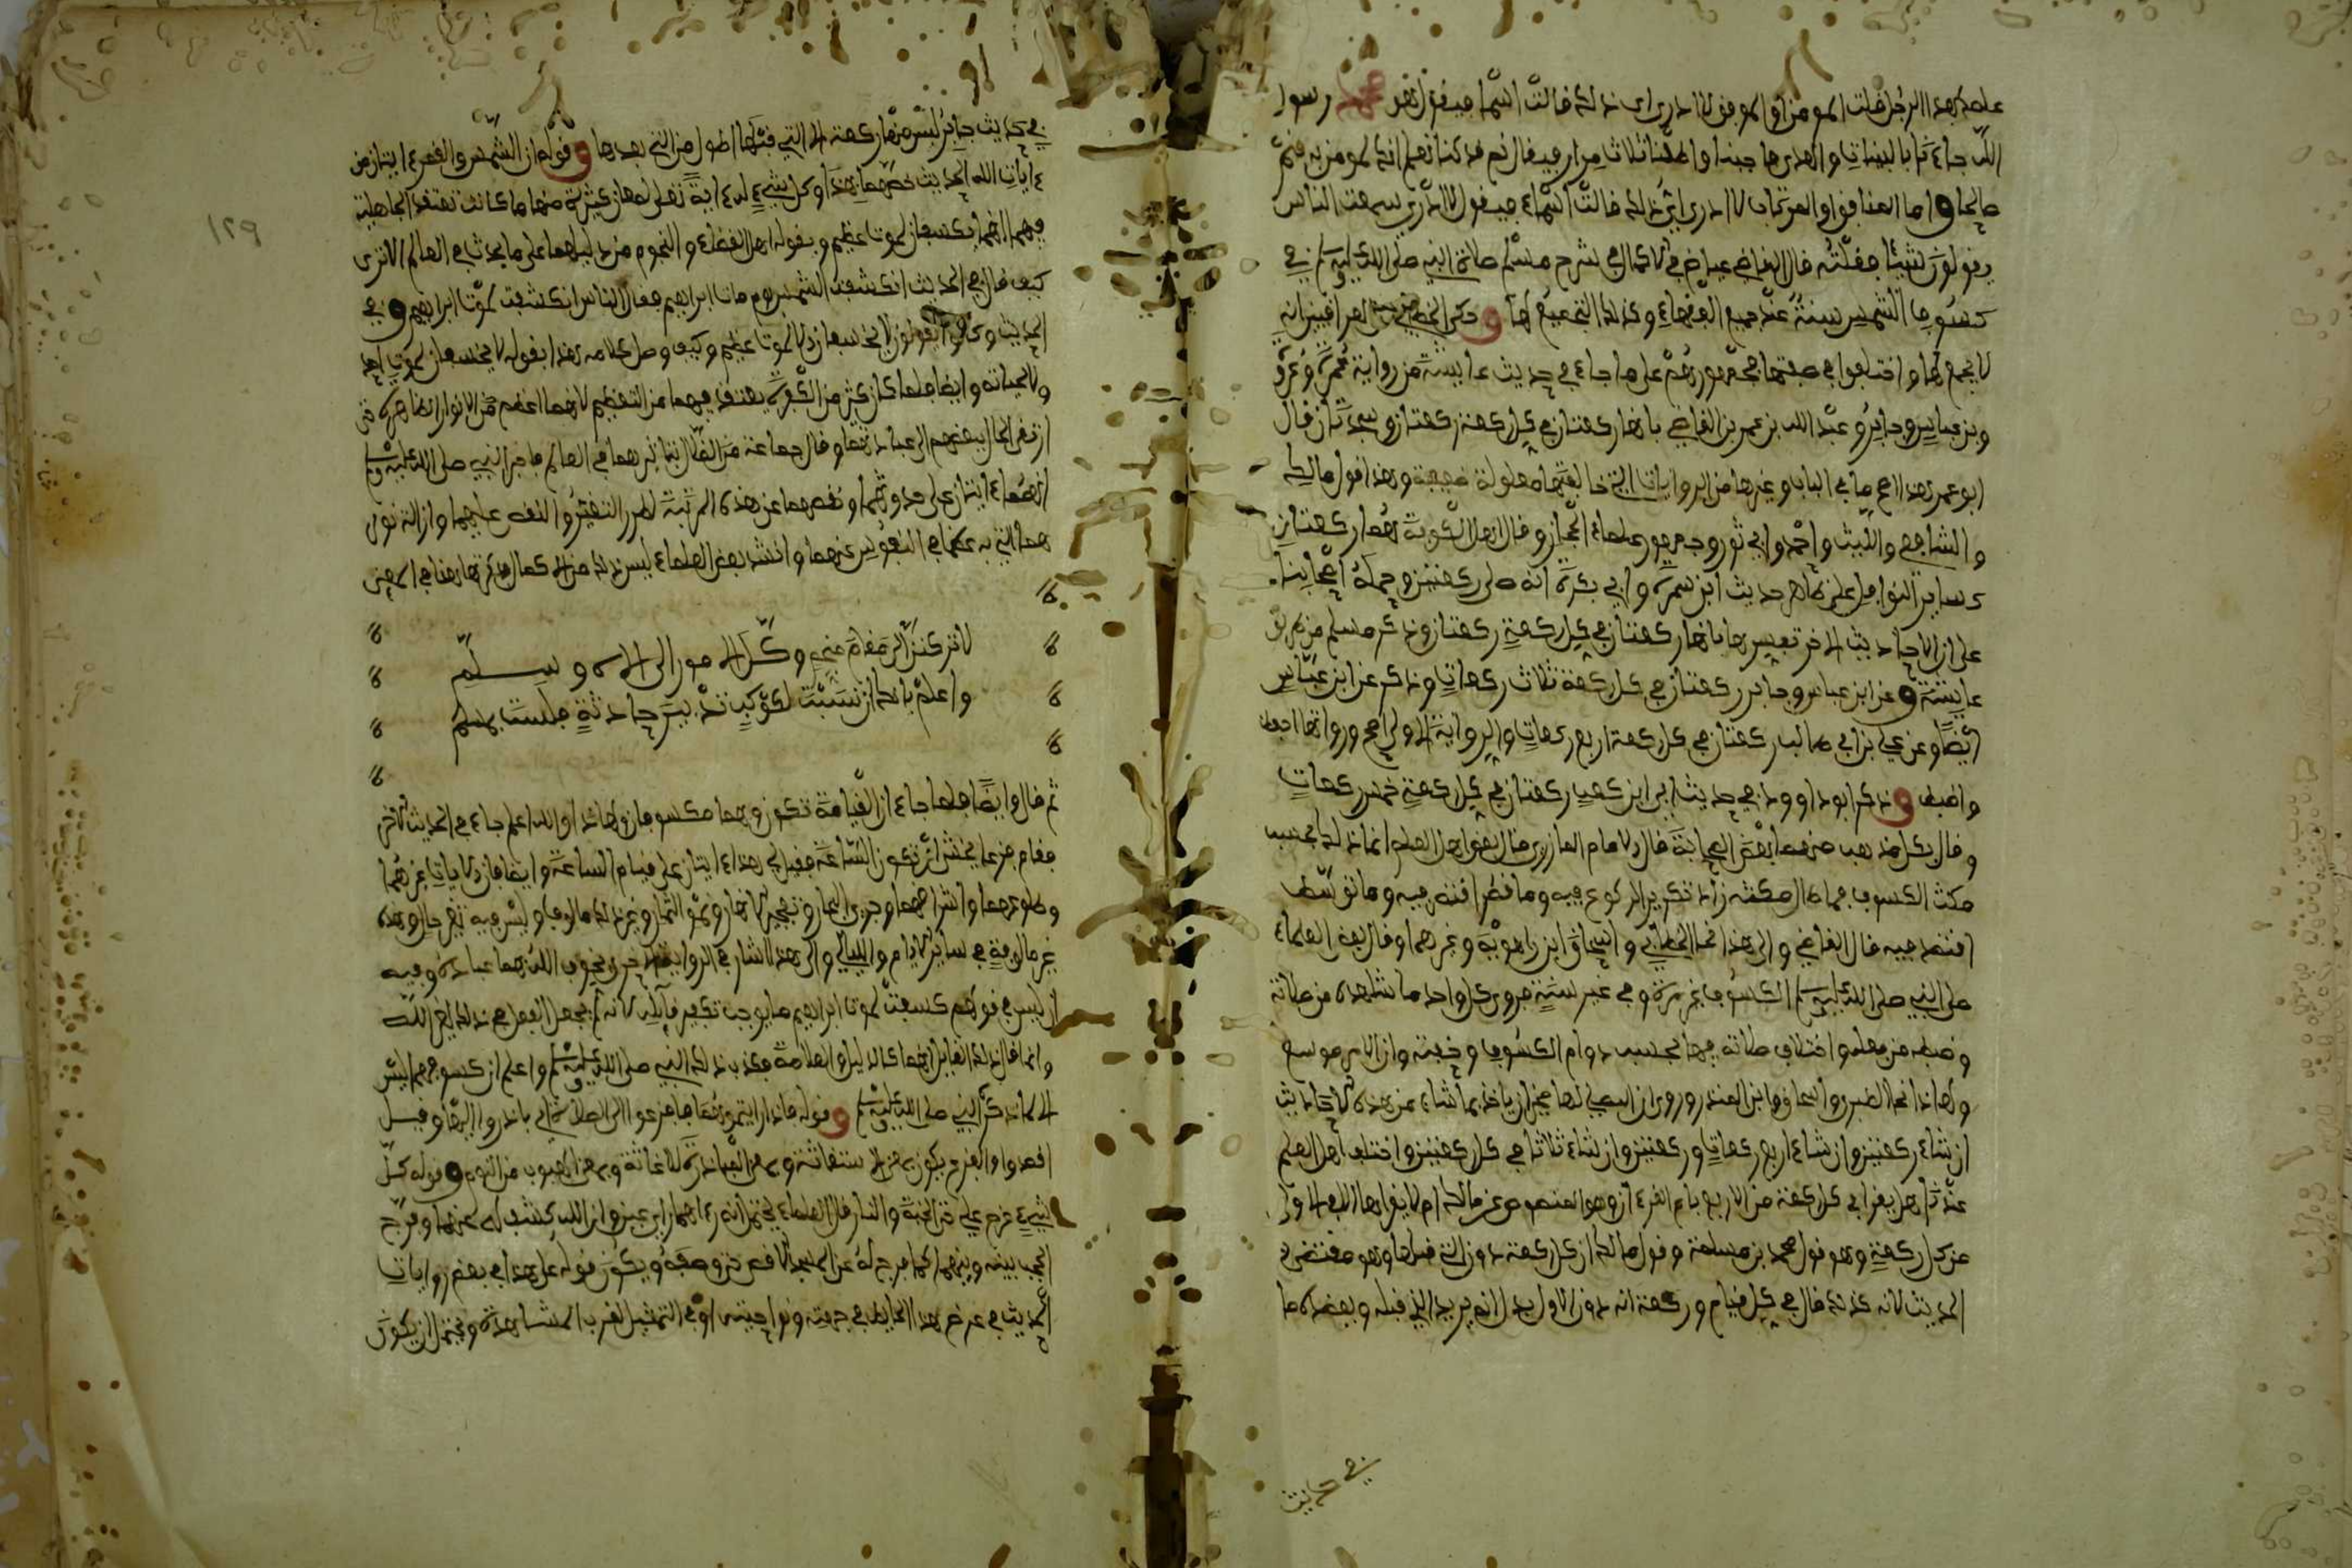 علمك بهذا الرجل فاما المومن او الموفن لا ادري اي ذلك فالت اسما فيفول هو محمد رسول
الله جاءنا بالبينات والهدى فاجبنا واطعنا ثلاث مرار فيفال نم فد كنا نعلم انك لمومن به فنم
صالحا و اما المنافق او المرتاب لا ادري اي ذلك فالت اسماء فيفول لا ادري سمعت الناس
يفولون شيئا ففلته فال الفاضي عياض في الاكمال في شرح مسلم صلاة النبي صلى الله عليه وسلم في
كسوف الشمس سنة عند جميع الففهاء وكذلك التجميع لها و حكى الخطابي عن العرافيين انه
لا يجمع لها واختلفوا في صفتها فجمهورهم على ما جاء في حديث عايشة من رواية عمرة وعروة
وبن عباس وجابر وعبد الله بن عمرو بن العاصي بانها ركعتان في كل ركعة ركعتان وسجدتان فال
ابو عمر هذا اصح ما في الباب وغيرها من الروايات التي خالفتها معلولة ضعيفة وهذا فول مالك
والشافعي والليث واحمد وابي ثور وجمهور علماء الحجاز وفال اهل الكوفة هما ركعتان
كساير النوافل على ظاهر حديث ابن سمرة وابي بكرة انه صلى ركعتين وحمله اصحابنا
على ان الاحاديث الاخر تفسرها بانها ركعتان في كل ركعة ركعتان وذكر مسلم من طريق
عايشة و عن ابن عباس وجابر ركعتان في كل ركعة ثلاث ركعات وذكر عن ابن عباس
ايضا وعن علي بن ابي طالب ركعتان في كل ركعة اربع ركعات والرواية الاولى اصح ورواتها احفظ
واضبط و ذكر ابو داوود في حديث ابي ابن كعب ركعتان في كل ركعة خمس ركعات
وفال بكل مذهب منهما بعض الصحابة فال الامام المازري فال بعض اهل العلم انما ذلك بحسب
مكث الكسوف فما طال مكثه زاد تكرير الركوع فيه وما فصر افتصر فيه وما توسط
افتصد فيه فال الفاضي والى هذا نحا الخطابي واسحاق ابن راهوية وغيرهما وفال بعض العلماء
صلى النبي صلى الله عليه وسلم الكسوف غير مرة وفي غير سنة فروى كل واحد ما شاهده من صلاته
وضبطه من فعله واختلاف صلاته فيها بحسب دوام الكسوف وخفته وان الامر موسع
ولهاذا نحا الطبري واسحاق وابن المنذر وروي ان المصلي لها مخير ان ياخذ بما شاء من هذه الاحاديث
ان شاء ركعتين وان شاء اربع ركعات وركعتين وان شاء ثلاثا في كل ركعتين واختلف اهل العلم
عندنا هل يفرا في كل ركعة من الاربع بام الفرءان وهو المنصوص عن مالك ام لا يفراها الا في الاولى
من كل ركعة وهو فول محمد بن مسلمة وفول مالك ان كل ركعة دون التي فبلها وهو مفتضى
الحديث لانه كذلك فال في كل فيام وركعة انه دون الاول يدل انه يريد الذي فبله ويعضده ما
في حديث
في حديث جابر ليس منها ركعة الا التي فبلها اطول من التي بعدها و فوله ان الشمس والفمر ءايتان من
ءايات الله الحديث خصهما بهذا وكل شيء له ءاية تدل لمعان كثيرة منها ما كانت تعتفد الجاهلية
فيهما انهما يكسفان لموت عظيم ويفوله اهل الفضاء والنجوم من دليلهما على ما يحدث في العالم الا ترى
كيف فال في الحديث انكسفت الشمس يوم مات ابراهيم ففال الناس انكسفت لموت ابراهيم و في
الحديث وكانوا يفولون لا يخسفان الا لموت عظيم وكيف وصل كلامه هذا بفوله لا يخسفان لموت احد
ولا لحياته وايضا فلما كان كثير من الكفرة يعتفد فيهما من التعظيم لانهما اعظم من الانوار الظاهرة حتى
ارتفى الحال ببعضهم الى عبادتهما وفال جماعة من الضلال بتاثيرهما في العالم فاخبر النبي صلى الله عليه وسلم
انهما ءايتان على حدوثهما ونفصهما عن هذه المرتبة لطرو التغير والنفص عليهما وازالة نورهما
هما الذي به عظما في النفوس عنهما وانشد بعض العلماء ليس ذلك من الاكمال ذكرتها هنا في المعنى
لا تركنن الى مفام منجم وكل الامور الى الاله وسلم
واعلم بانك ان نسبت لكوكب تدبير حادثة فلست بمسلم
ثم فال وايضا فلما جاء ان الفيامة تكون وهما مكسوفان ولهاذا والله اعلم جاء في الحديث الاخر
ففام فزعا يخشى ان تكون الساعة ففيل لهذا ءايتان على فيام الساعة وايضا فان الايات غيرهما
وطلوعهما واشرافهما وجري البحار وتفجير الانهار ونمو الثمار وغير ذلك مالوفا وليس فيه تغير حال وهذه
غير مالوفة في ساير الايام والليالي والى هذا اشار في الرواية الاخرى يخوف الله بهما عباده وفيه
ان ليس في فولهم كسفت لموت ابراهيم ما يوجب تكفير فايله لانه لم يجعل الفعل في ذلك لغير الله
وانما فال ذلك الفايل انهما كالدليل والعلامة فكذب ذلك النبي صلى الله عليه وسلم واعلم ان كسوفهما ليس
الا لما ذكر النبي صلى الله عليه وسلم و فوله فاذا رايتموهما فافزعوا الى الصلاة اي بادروا اليها وفيل
افصدوا والفزع يكون بمعنى الاستغاثة وبمعنى المبادرة للاغاثة وبمعنى الهبوب من النوم و فوله كل
شيء عرض علي حتى الجنة والنار فال العلماء يحتمل انه رءاهما راي عين وان الله كشف له عنهما وفرج
الحجب بينه وبينهما كما فرج له عن المسجد الافصى حتى وصفه ويكون فوله على هذا في بعض روايات
الحديث في عرض هذا الحايط في جهته ونواحيه او في التمثيل لفرب المشاهدة ويحتمل ان يكون
١٢٩